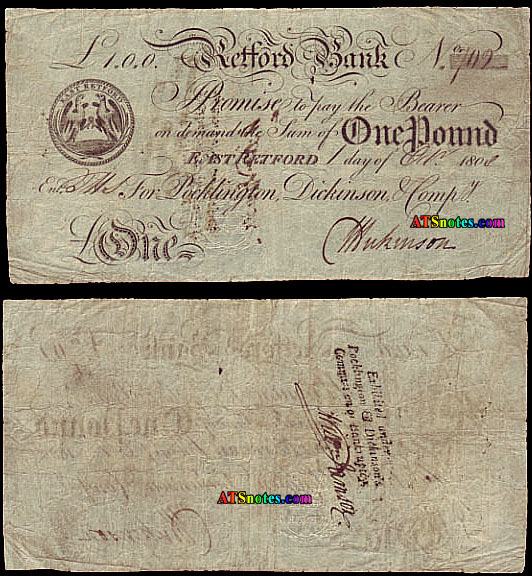 £1.0.0. Retford Bank No. 702
EAST RETFORD
I Promise to pay the Bearer
on demand the Sum of One Pound
EAST RETFORD 1 day of Oct. 1808
Entd. For Pocklington, Dickinson, & Compy.
ATSnotes.com
£One
Dickinson
Exhibited under
Pocklington & Dickinson's
Commission of Bankruptcy
ATSnotes.com